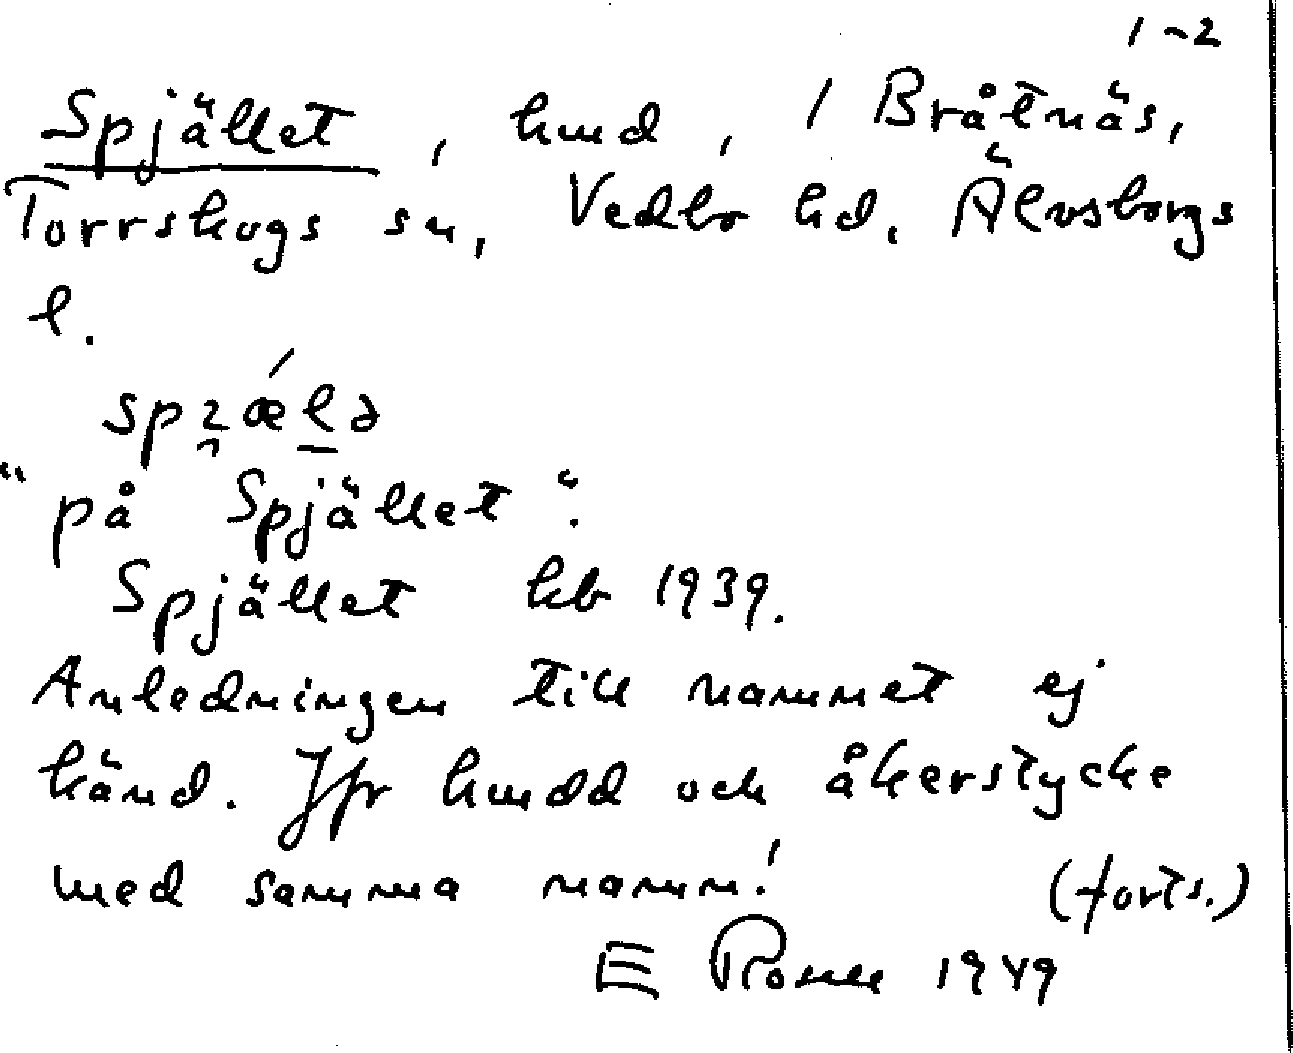 1-2
Spjället, hmd, 1 Bråtnäs,
Torrskogs sn, Vedbo hd, Älvsborgs
l.
"på Spjället".
Spjället kb 1939.
Anledningen till namnet ej
känd. Jfr hmdd och åkerstycke
med samma namn! (forts.)
E 1949